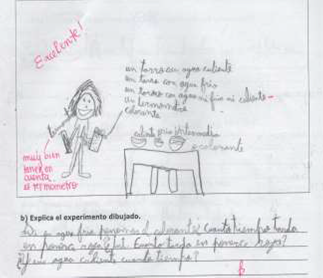 Excelente!
un tarro con agua caliente
un tarro con agua fria
un tarro con agua ni fria ni caliente
un termometro
colorante
caliente fria intermedia
colorante
muy bien
tener en
cuenta
el termometro
b) Explica el experimento dibujado.
agua fria ponemos el colorante Cuanto tiempo tarda
en ponerse Cuanto tarda en ponerse rojo?
agua caliente cuanto tiempo?